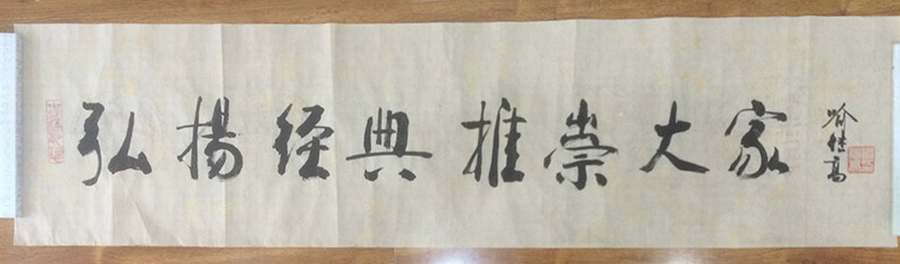 弘揚经典 推崇大家
喻继高